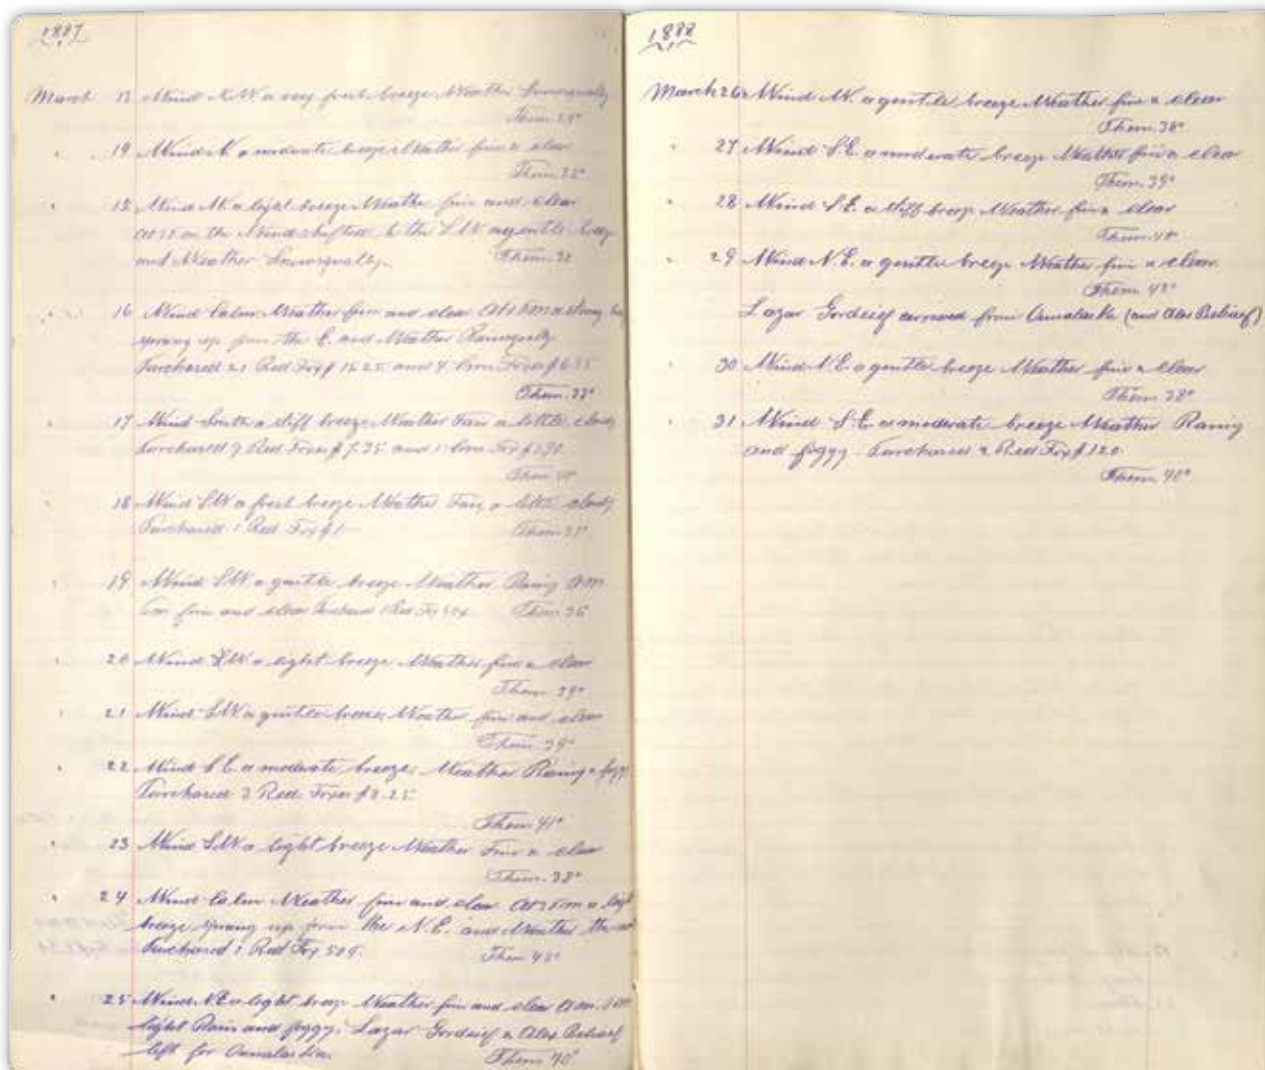 1887
March 13 Wind N.W. a very fresh breeze Weather Snowsqually
Them.
" 14 Wind N. a moderate breeze Weather fine & clear
Them. 32°
" 15 Wind W. a light breeze Weather fine and clear
the Wind shifted to the S.W. a gentle breeze
and Weather Snowsqually. Them. 32
16 Wind Calm Weather fine and clear At PM a strong
sprang up from the E. and Weather Rainsqually
Purchased 21 Red Fox $ 15.25 and 4 Cross Foxes $ 6.35
Them. 33°
" 17 Wind South a stiff breeze Weather Fair a little cloudy
Purchased 9 Red Foxes $ 7.35 and 1 Cross Fox $
Them.
" 18 Wind S.W. a fresh breeze Weather Fair, a little cloudy
Purchased 1 Red Fox $ 1 — Them. 37°
" 19 Wind S.W. a gentle breeze Weather Rainy AM
fine and clear Purchased 1 Red Fox Them. 36°
" 20 Wind S.W. a light breeze Weather fine & clear
Them. 39°
" 21 Wind S.W. a gentle breeze Weather fine and clear
Them. 39°
" 22 Wind S.E. a moderate breeze, Weather Rainy & foggy
Purchased 3 Red Foxes $ 2.25
Them. 41°
" 23 Wind S.W. a light breeze Weather Fine & clear
Them. 38°
" 24 Wind Calm Weather fine and clear At PM a light
breeze sprang up from the N.E. and Weather the
Purchased 1 Red Fox 50¢. Them 40°
" 25 Wind N.E. a light breeze Weather fine and clear A.M.
light Rain and foggy. Lazar Gordeief & Alex Beliaef
left for Ounalaska Them. 40°
1888
March 26 Wind W. a gentle breeze Weather fine & clear
Them. 38°
" 27 Wind S.E. a moderate breeze Weather fine & clear
Them. 39°
" 28 Wind S.E. a stiff breeze Weather fine & clear
Them. 40
" 29 Wind N.E. a gentle breeze Weather fine & clear.
Them. 42°
Lazar Gordeief arrived from Ounalaska (and Alex Beliaef)
" 30 Wind N.E. a gentle breeze Weather fine & clear
Them. 38°
" 31 Wind S.E. a moderate breeze Weather Rainy
and foggy. Purchased 2 Red Fox $ 1.20
Them. 40°